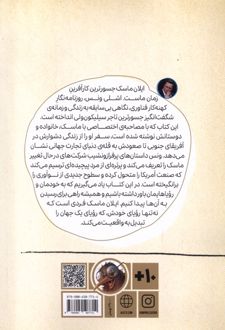 ایلان ماسک جسورترین کارآفرین
زمان ماست. اشلی ونس، روزنامه‌نگار
کهنه‌کار فناوری، نگاهی بی‌سابقه به زندگی و زمانه‌ی
شگفت‌انگیز جسورترین تاجر سیلیکون‌ولی انداخته است.
این کتاب که با مصاحبه‌ی اختصاصی با ماسک، خانواده و
دوستانش نوشته شده است، سفر او را از زندگی دشوارش در
آفریقای جنوبی تا صعودش به قله‌ی دنیای تجارت جهانی نشان
می‌دهد. ونس داستان‌های پرفراز‌ونشیب شرکت‌های در حال تغییر
ماسک را تعریف می‌کند و پرتره‌ای از مرد پیچیده‌ای ترسیم می‌کند
که صنعت آمریکا را متحول کرده و سطوح جدیدی از نوآوری را
برانگیخته است. در این کتاب یاد می‌گیریم که به خودمان و
رؤیاهایمان باور داشته باشیم و همیشه راهی برای رسیدن
به آن‌ها پیدا کنیم. ایلان ماسک فردی است که
نه‌تنها رؤیای خودش، که رؤیای یک جهان را
تبدیل به واقعیت می‌کند.
+۱۰